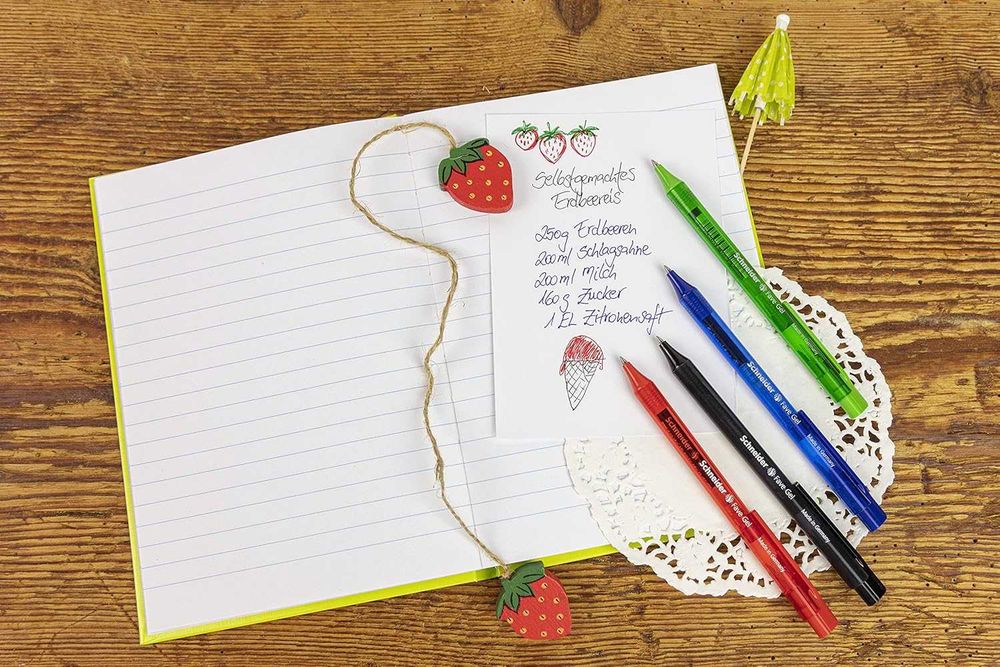 Selbstgemachtes
Erdbeereis
250g Erdbeeren
200ml Schlagsahne
200ml Milch
160g Zucker
1 EL Zitronensaft
Schneider Fave Gel Made in Germany
Schneider Fave Gel Made in Germany
Schneider Fave Gel Made in Germany
Schneider Schneider Fave Gel Made in Germany